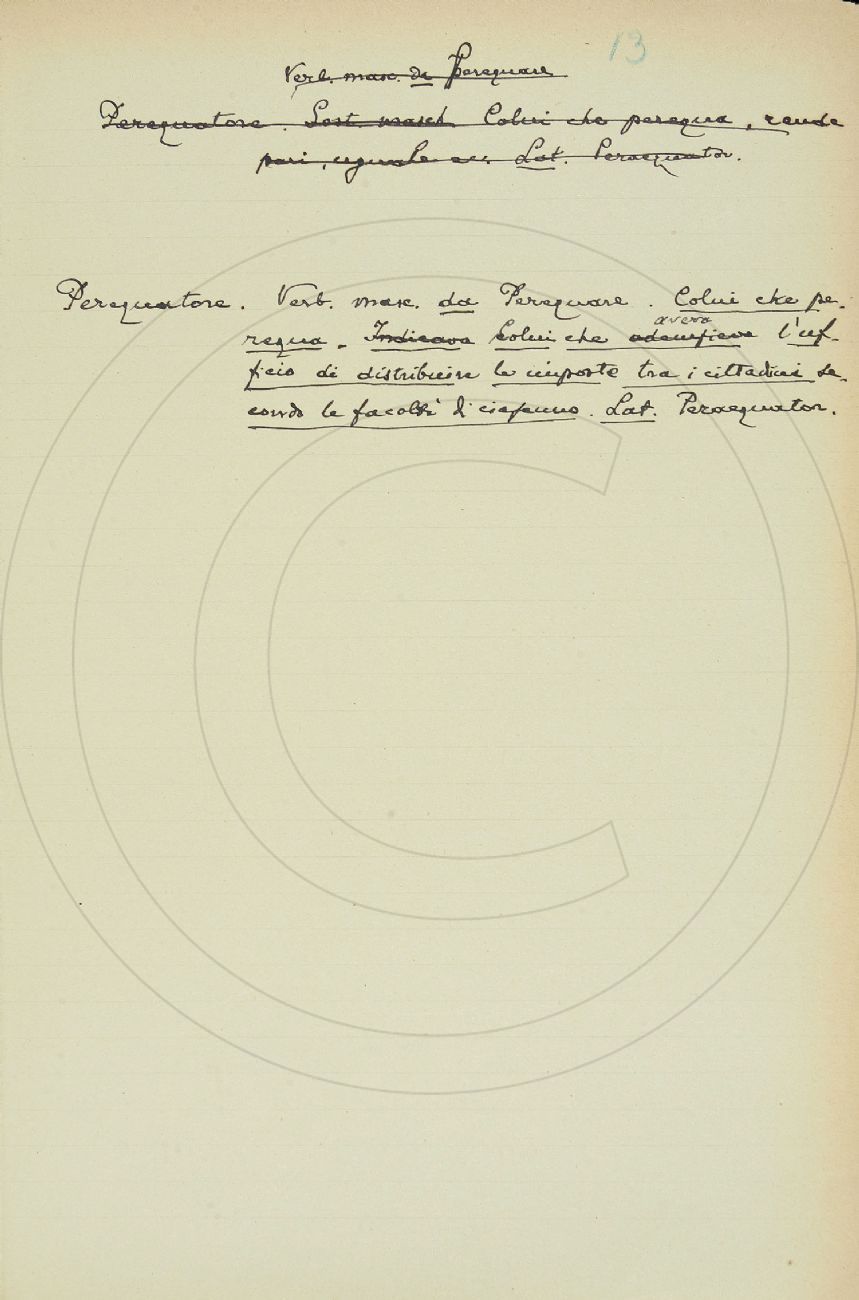 13
Verb. masc. da Perequare
Perequatore. Sost. masch. Colui che perequa, rende
pari, uguale ec. Lat. Peraequator.
Perequatore. Verb. masc. da Perequare. Colui che pe-
avera
requa. Indicava Colui che l'uf-
ficio di distribuire le imposte tra i cittadini se-
condo le facoltà di ciascuno. Lat. Peraequator.